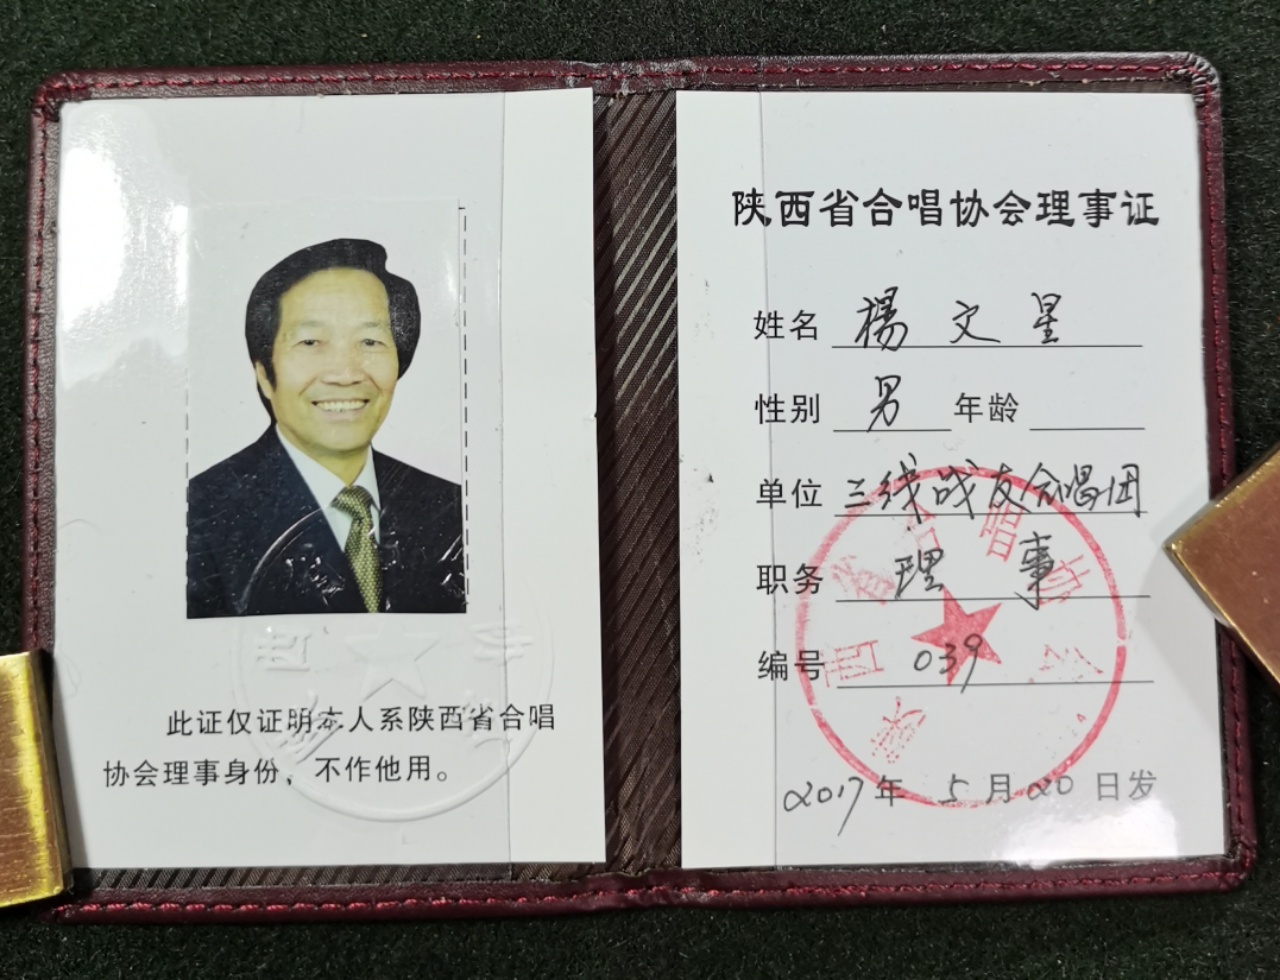 此证仅证明本人系陕西省合唱
协会理事身份，不作他用。
陕西省合唱协会理事证
姓名 楊文星
性别 男 年龄
单位 三线战友合唱团
职务 理事
编号 039
2017年 5月20日发
陕西省合唱协会